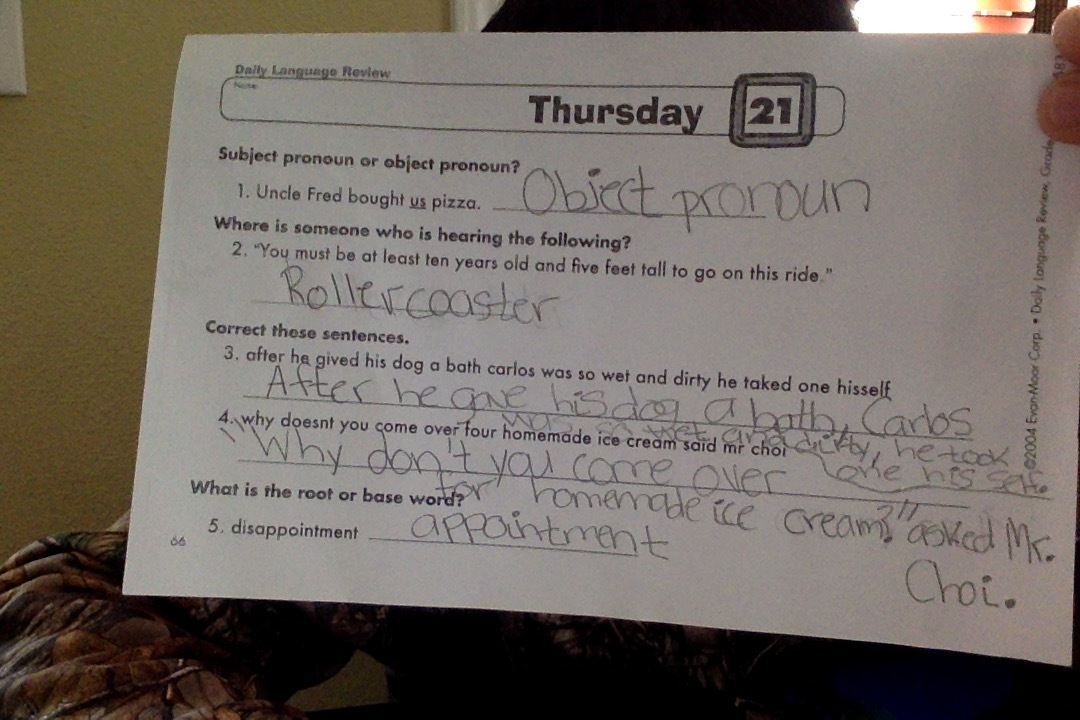 Daily Language Review
Name
Thursday 21
Subject pronoun or object pronoun?
1. Uncle Fred bought us pizza. Object pronoun
Where is someone who is hearing the following?
2. "You must be at least ten years old and five feet tall to go on this ride."
Rollercoaster
Correct these sentences.
3. after he gived his dog a bath carlos was so wet and dirty he taked one hisself
After he gave his dog a bath, Carlos
was so wet and dirty, he took
one his self.
4. why doesnt you come over four homemade ice cream said mr choi
"Why don't you come over
for homemade ice cream?" asked Mr.
Choi.
What is the root or base word?
5. disappointment appointment
66
©2004 Evan-Moor Corp. • Daily Language Review, Grade